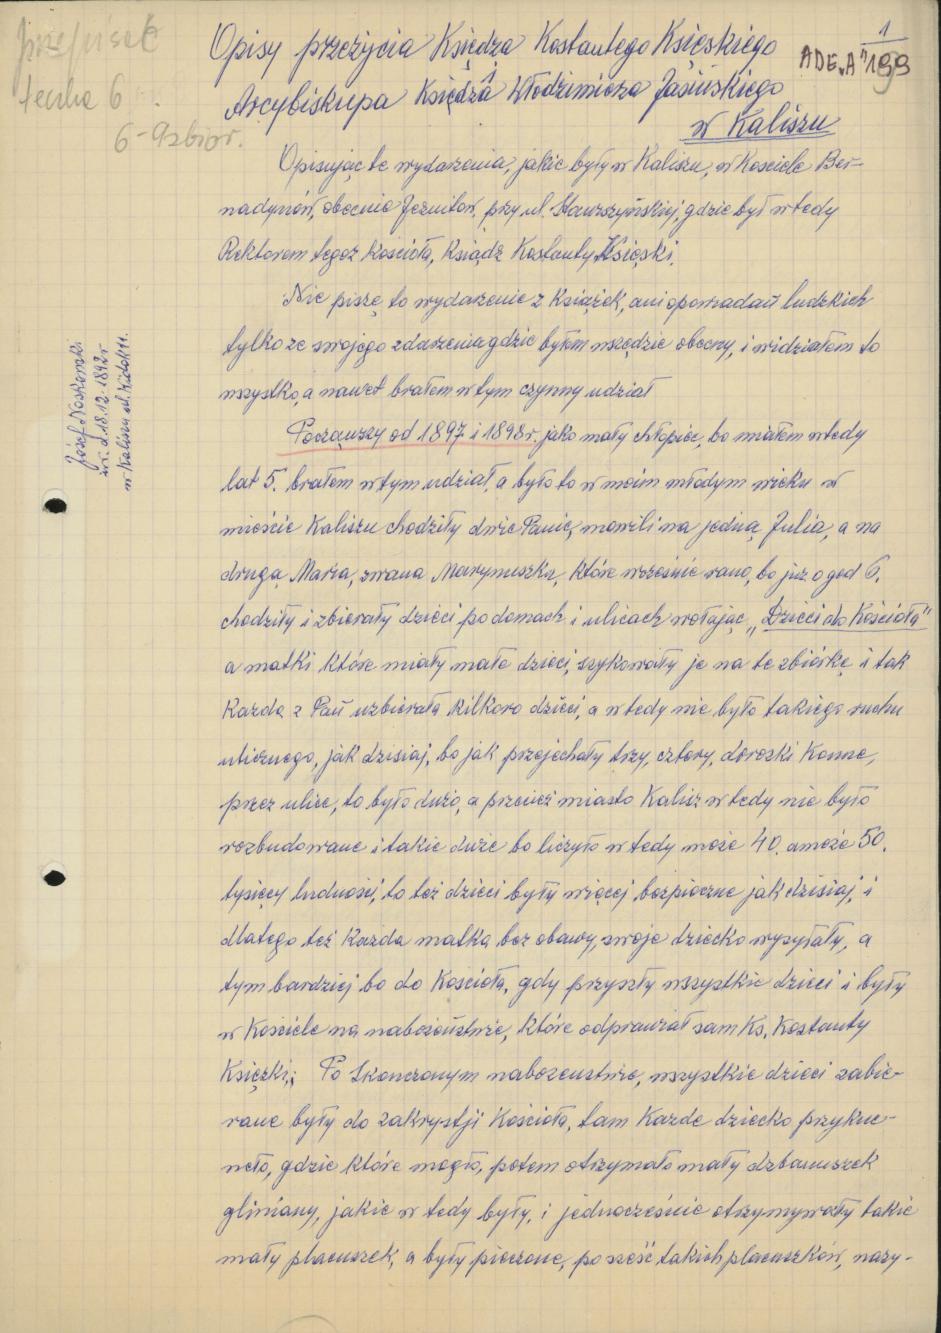 przepisać
teczka 6
6-9 zbior.
1
ADE„A" 199
Opisy przeżycia Księdza Kostantego Księskiego
Arcybiskupa Księdza Włodzimierza Jasińskiego
w Kaliszu
Opisując te wydarzenia, jakie były w Kaliszu, w Kościele Ber-
nadynów, obecnie Jezuitów, przy ul. Stawszyńskiej, gdzie był wtedy
Rektorem tegoż Kościoła, Ksiądz Kostanty Księski.
Nie piszę to wydarzenie z Książek, ani opowiadań ludzkich
tylko ze swojego zdarzenia gdzie byłem wszędzie obecny, i widziałem to
wszystko, a nawet brałem w tym czynny udział
Począwszy od 1897 i 1898 r. jako mały chłopiec, bo miałem wtedy
lat 5. brałem w tym udział, a było to w moim młodym wieku w
mieście Kaliszu chodziły dwie Panie, mówili na jedną, Julia, a na
drugą Maria, zwana Marymuszka, które wcześnie rano, bo już o god 6.
chodziły i zbierały dzieci po domach i ulicach wołając „Dzieci do Kościoła"
a matki które miały małe dzieci, szykowały je na te zbiórkę i tak
Każda z Pań uzbierała kilkoro dzieci, a wtedy nie było takiego ruchu
ulicznego, jak dzisiaj, bo jak przejechały trzy, cztery, dorożki Konne,
przez ulice, to było dużo, a przecież miasto Kalisz wtedy nie było
rozbudowane i takie duże bo liczyło wtedy może 40. a może 50.
tysięcy ludności, to też dzieci były więcej bezpieczne jak dzisiaj, i
dlatego też Każda matka bez obawy, swoje dziecko wysyłały, a
tym bardziej bo do Kościoła, gdy przyszły wszystkie dzieci i były
w Kościele na nabożeństwie, które odprawiał sam Ks. Kostanty
Księżki; Po Skończonym nabożeństwie, wszystkie dzieci zabie-
rane były do zakrystji Kościoła, tam Każde dziecko przykuc-
neło, gdzie które mogło, potem otrzymało mały dzbanuszek
gliniany, jakie w tedy były, i jednocześnie otrzymywały takie
mały placuszek, a były pieczone, po sześć takich placuszków, nazy-
Józef Noskowski
ur. d. 18.12.1892 r
w Kaliszu ul.